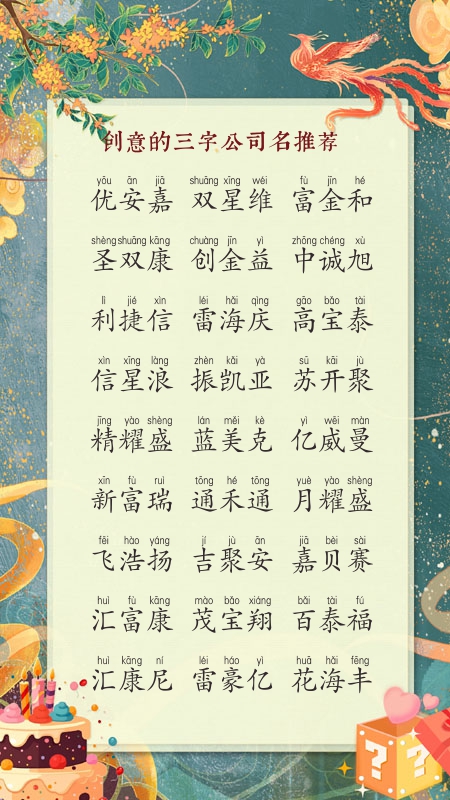 创意的三字公司名推荐
yōu ān jiā shuāng xīng wéi fù jīn hé
优安嘉 双星维 富金和
shèng shuāng kāng chuàng jīn yì zhōng chéng xù
圣双康 创金益 中诚旭
lì jié xìn léi hǎi qìng gāo bǎo tài
利捷信 雷海庆 高宝泰
xìn xīng làng zhèn kǎi yà sū kāi jù
信星浪 振凯亚 苏开聚
jīng yào shèng lán měi kè yì wēi màn
精耀盛 蓝美克 亿威曼
xīn fù ruì tōng hé tōng yuè yào shèng
新富瑞 通禾通 月耀盛
fēi hào yáng jí jù ān jiā bèi sài
飞浩扬 吉聚安 嘉贝赛
huì fù kāng mào bǎo xiáng bǎi tài fú
汇富康 茂宝翔 百泰福
huì kāng ní léi háo yì huā hǎi fēng
汇康尼 雷豪亿 花海丰
? ?